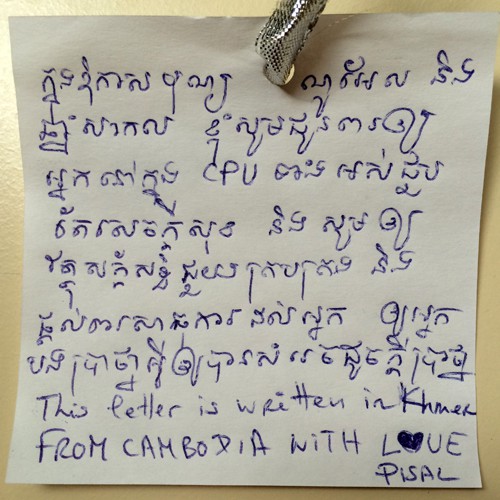 ក្នុងឱកាសបុណ្យ ណូអែល និង
ឆ្នាំសាកល ខ្ញុំសូមជូនពរឲ្យ
អ្នកនៅក្នុង CPU ទាំងអស់ជួប
តែសេចក្តីសុខ និង សូមឲ្យ
វត្ថុស័ក្តិសិទ្ធិជួយគ្រប់គ្រង និង
ផ្តល់ពរសាធុការដល់អ្នក ឲ្យអ្នក
បងប្រាថ្នាអ្វីឲ្យបានសំរេចដូចក្តីប្រាថ្នា
This letter is written in Khmer
FROM CAMBODIA WITH LOVE
PISAL